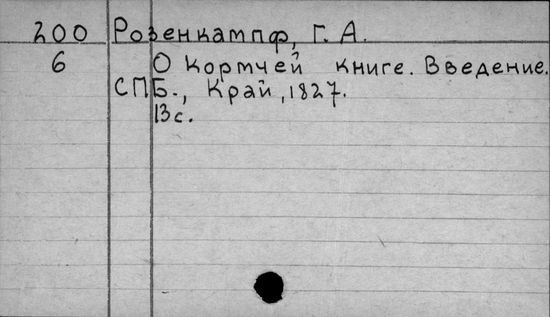 200 Розенкампф, Г. А.
6 О Кормчей книге. Введение.
СПБ., Край, 1827.
13 с.